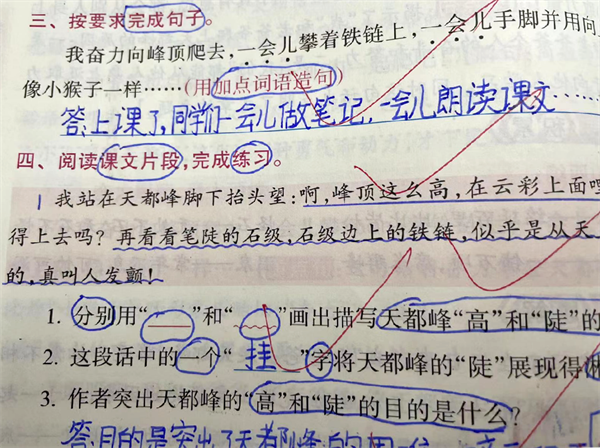 三、按要求完成句子。
我奋力向峰顶爬去，一会儿攀着铁链上，一会儿手脚并用向
像小猴子一样……(用加点词语造句)
答：上课了，同学们一会儿做笔记，一会儿朗读课文……
四、阅读课文片段，完成练习。
1 我站在天都峰脚下抬头望：啊，峰顶这么高，在云彩上面
得上去吗？再看看笔陡的石级，石级边上的铁链，似乎是从天
的，真叫人发颤！
1. 分别用“ ”和“ ”画出描写天都峰“高”和“陡”的
2. 这段话中的一个“挂”字将天都峰的“陡”展现得淋
3. 作者突出天都峰的“高”和“陡”的目的是什么？
答：目的是突出了天都峰的